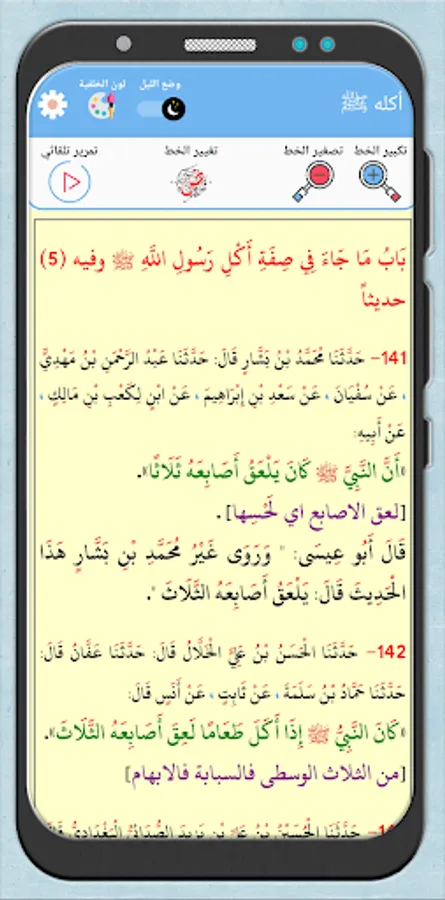 لون الخلفية وضع الليل
أكله ﷺ
تكبير الخط تصغير الخط تغيير الخط تمرير تلقائي
بَابُ مَا جَاءَ فِي صِفَةِ أَكْلِ رَسُولِ اللَّهِ ﷺ وفيه (5)
حديثاً
141- حَدَّثَنَا مُحَمَّدُ بْنُ بَشَّارٍ قَالَ: حَدَّثَنَا عَبْدُ الرَّحْمَنِ بْنُ مَهْدِيٍّ
، عَنْ سُفْيَانَ ، عَنْ سَعْدِ بْنِ إِبْرَاهِيمَ ، عَنْ ابْنٍ لِكَعْبِ بْنِ مَالِكٍ ،
عَنْ أَبِيهِ:
«أَنَّ النَّبِيَّ ﷺ كَانَ يَلْعَقُ أَصَابِعَهُ ثَلَاثًا».
[لعق الاصابع اي لَحْسِها] .
قَالَ أَبُو عِيسَى: " وَرَوَى غَيْرُ مُحَمَّدِ بْنِ بَشَّارٍ هَذَا
الْحَدِيثَ قَالَ: يَلْعَقُ أَصَابِعَهُ الثَّلَاثَ ".
142- حَدَّثَنَا الْحَسَنُ بْنُ عَلِيٍّ الْخَلَّالُ قَالَ: حَدَّثَنَا عَفَّانُ قَالَ:
حَدَّثَنَا حَمَّادُ بْنُ سَلَمَةَ ، عَنْ ثَابِتٍ ، عَنْ أَنَسٍ قَالَ:
«كَانَ النَّبِيُّ ﷺ إِذَا أَكَلَ طَعَامًا لَعِقَ أَصَابِعَهُ الثَّلَاثَ».
[من الثلاث الوسطى فالسبابة فالابهام]
حَدَّثَنَا الْحُسَيْنُ بْنُ عَلِيِّ بْنِ يَزِيدَ الصُّدَائِيُّ الْبَغْدَادِيُّ قَالَ